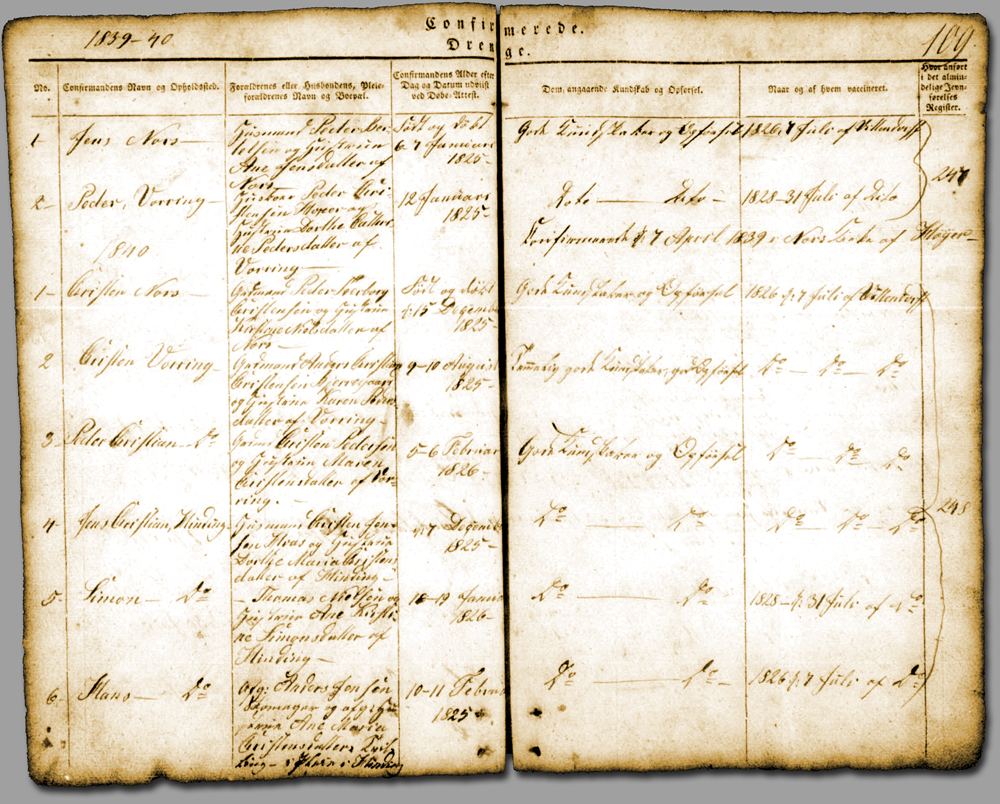 1839-40
Confirmerede.
109.
Drenge.
No.
Confirmandens Navn og Opholdsted.
Forældrenes eller Husbondens, Pleie-
forældrenes Navn og Boepæl.
Confirmandens Alder efter
Dag og Datum udviist
ved Døbe-Attest.
Dom angaaende Kundskab og Opførsel.
Naar og af hvem vaccineret.
Hvor anført
i det almin-
delige Jevn-
førelses
Register.
1-
Jens Nors-
Huusmand Peder Ber-
telsen og Hustrue
Ane Jensdatter af
Nors
Født og døbt
6-7 Januari
1825-
Gode Kundskaber og Opførsel
1826 7 Juli af Vittendorff
247
2
Peder, Vorring-
Huusboer Peder Chri-
stensen og
Hustrue Dorthe Cathri-
ne Pedersdatter af
Vorring-
12 Januari
1825-
Dito — Dito -
1828-31 Juli af Dito
Confirmerede d. 7 April 1839 i Nors Kirke af Høyer-
1840
1-
Christen Nors-
Gaardmand Peder
Christensen og Hustrue
Nielsdatter af
Nors-
Født og døbt
15 December
1825-
Gode Kundskaber og Opførsel
1826 d. 7 Juli af Vittendorff
2
Christen Vorring-
Gaardmand Anders Christian
Christensen
og Hustrue Karen
datter af Vorring-
9-10 August
1825-
Temmelig gode Kundskaber, god Opførsel
Do — Do — Do
3
Peder Christian- Do
Christen Pedersen
og Hustrue Maren
Christensdatter af Vor-
ring.-
5-6 Februar
1826-
Gode Kundskaber og Opførsel
Do — Do Do
4-
Jens Christian, Hinding-
Huusmand Christen Jen-
sen og Hustrue
Dorthe Maria Christens-
datter af Hinding-
7 December
1825-
Do — Do
Do — Do — Do
248
5-
Simon- Do
-Thomas Nielsen og
Hustrue Ane Kirsti-
ne Simonsdatter af
Hinding-
18-19 Januar
1826-
Do — Do
1828-d. 31 Juli af Do
6-
Hans- Do
Anders Jensen
Skomager og
Ane Maria
Christensdatter
i Hinding
10-11 Februar
1825
Do — Do
1826 d. 7 Juli af Do